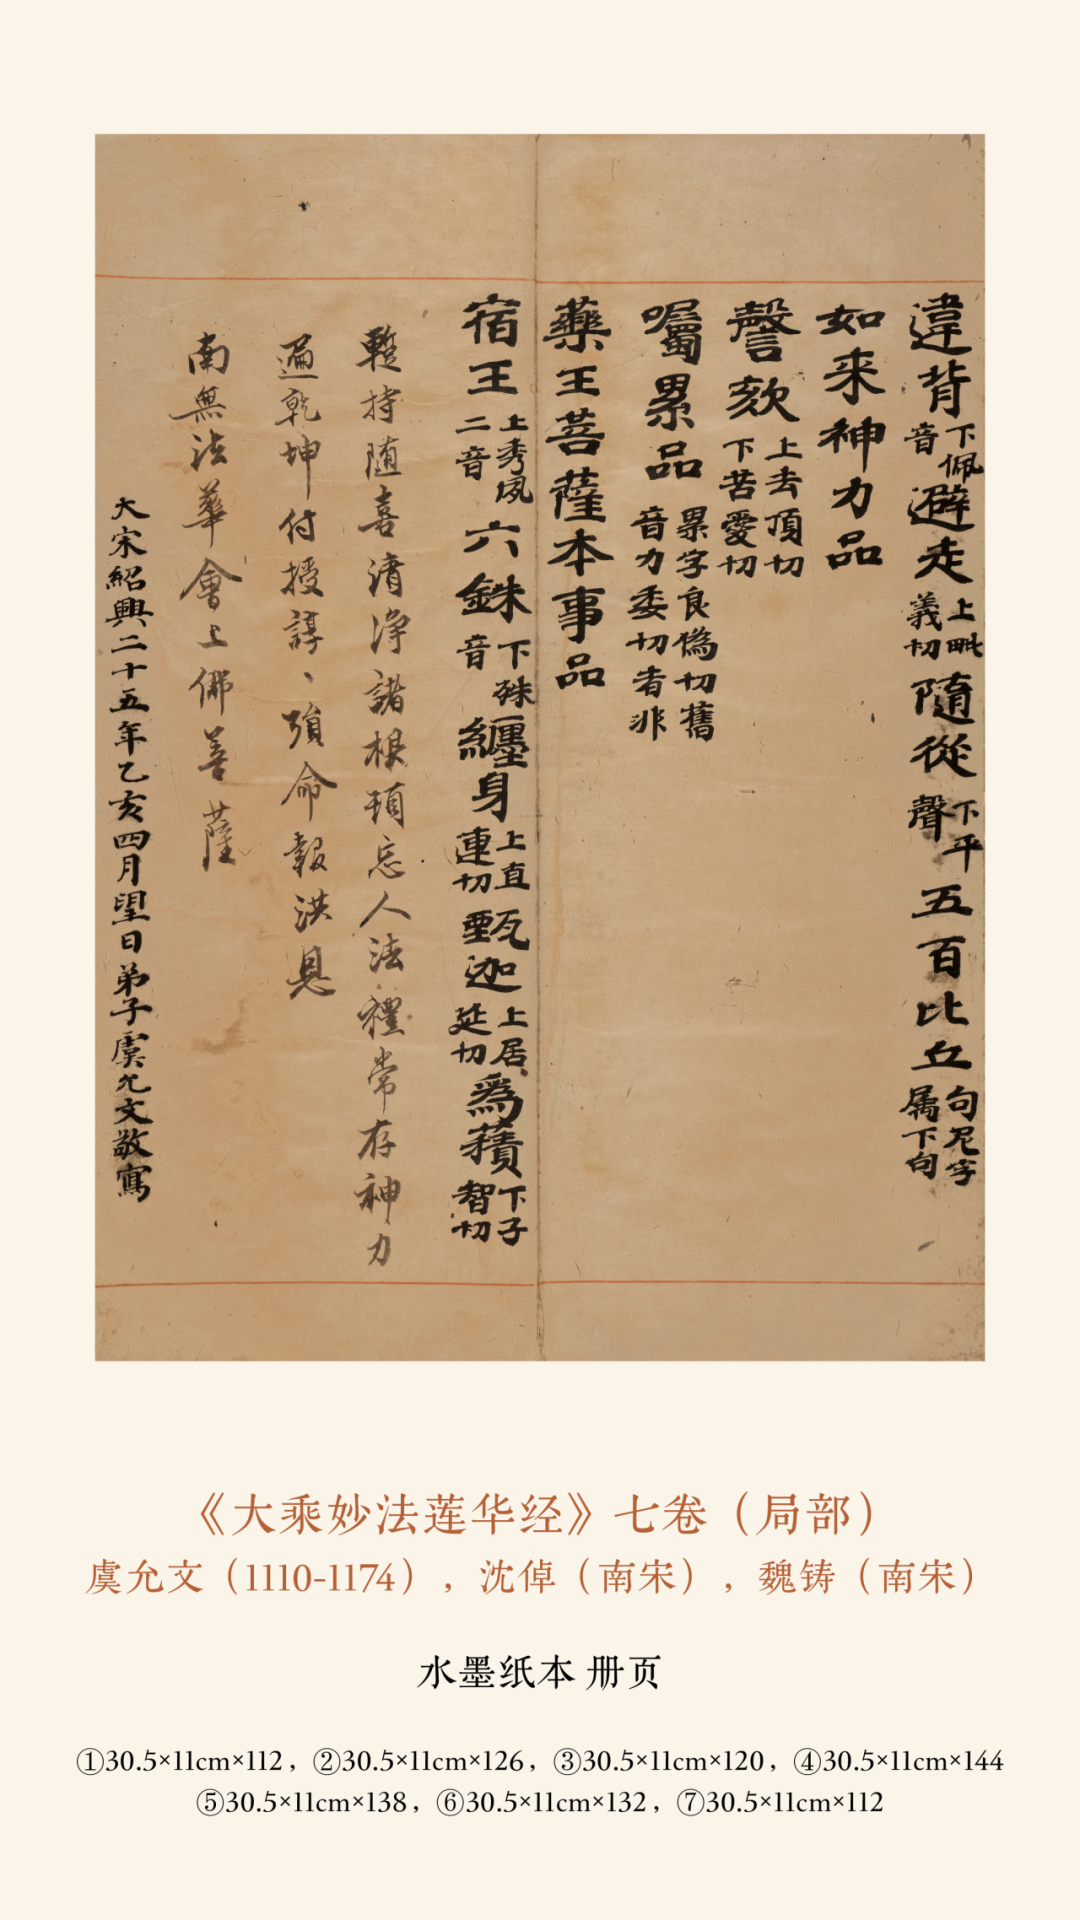 違背下佩音避走上毗義切隨從下平聲五百比丘句尼字属下句
如来神力品
謦欬上去頂切下苦愛切
囑累品累字良偽切舊音力委切者非
藥王菩薩本事品
宿王上秀夙二音六銖下殊音纏身上直連切甄迦上居延切為積下子智切
輊持随喜清淨諸根頓忘人法禮常存神力
遍乾坤付授諄、須命報洪恩
南無法華會上佛菩薩
大宋紹興二十五年乙亥四月望日弟子虞允文敬寫
《大乘妙法莲华经》七卷（局部）
虞允文（1110-1174），沈倬（南宋），魏铸（南宋）
水墨纸本 册页
①30.5×11cm×112，②30.5×11cm×126，③30.5×11cm×120，④30.5×11cm×144
⑤30.5×11cm×138，⑥30.5×11cm×132，⑦30.5×11cm×112